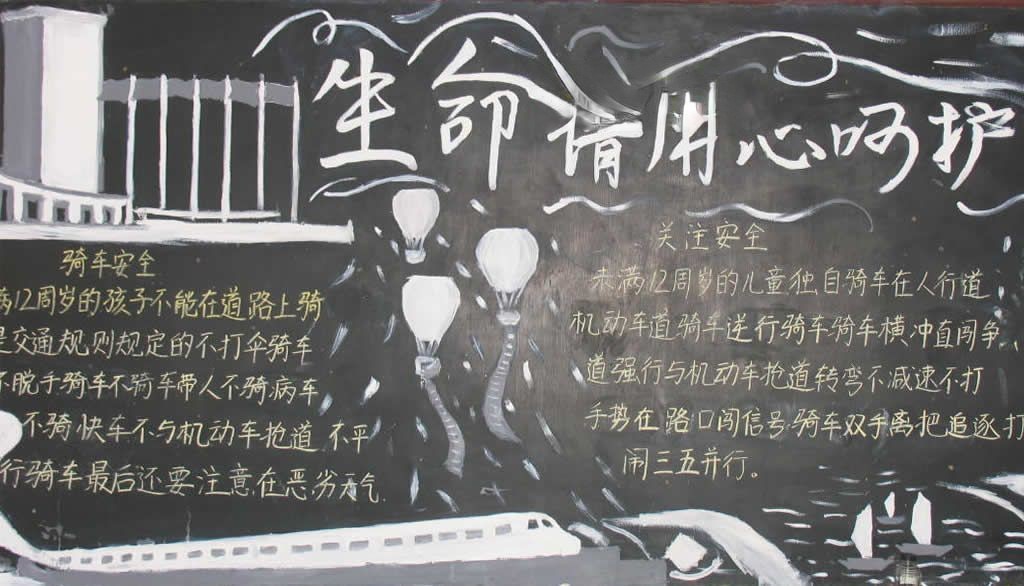 生命请用心呵护
骑车安全
满12周岁的孩子不能在道路上骑
是交通规则规定的不打伞骑车
不脱手骑车不骑车带人不骑病车
不骑快车不与机动车抢道 不平
行骑车最后还要注意在恶劣天气
关注安全
未满12周岁的儿童独自骑车在人行道
机动车道骑车逆行骑车骑车横冲直闯争
道强行与机动车抢道转弯不减速不打
手势在路口闯信号骑车双手离把追逐打
闹三五并行。